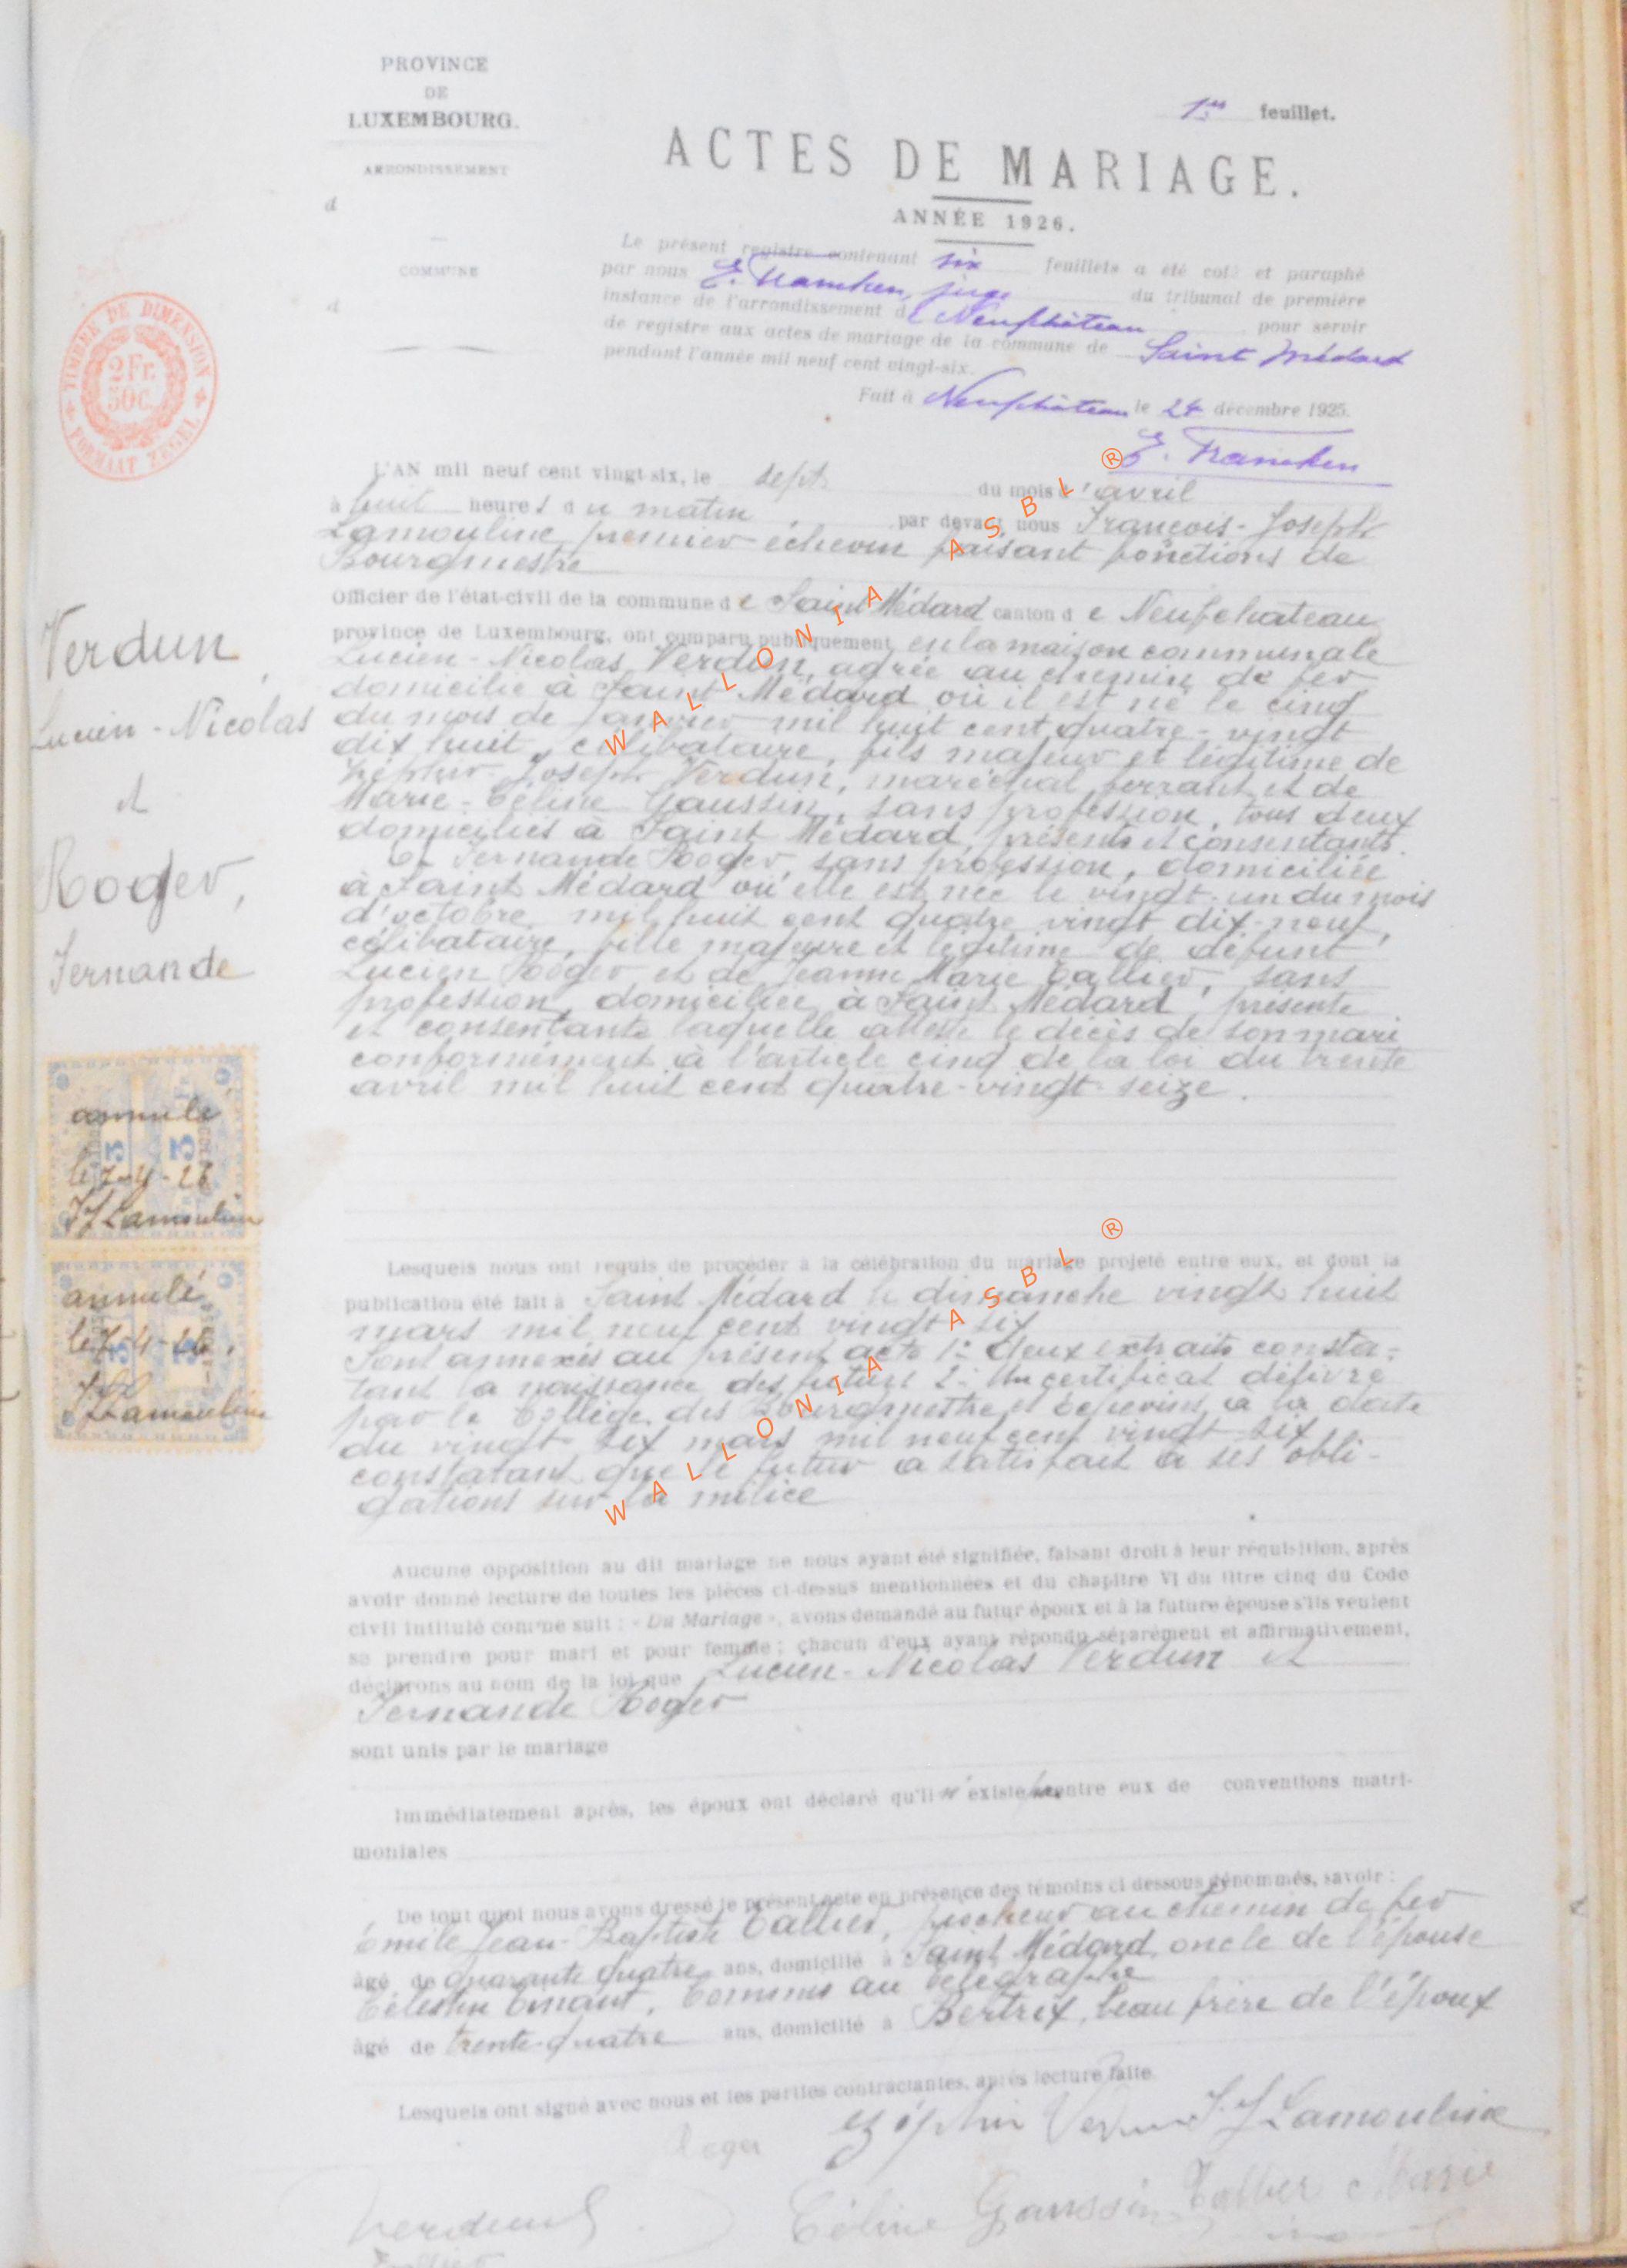 PROVINCE
DE
LUXEMBOURG.
ARRONDISSEMENT
d
COMMUNE
d
1er feuillet.
ACTES DE MARIAGE.
ANNÉE 1926.
Le présent registre contenant six feuillets a été coté et paraphé
par nous juge du tribunal de première
instance de l'arrondissement de Neufchâteau pour servir
de registre aux actes de mariage de la commune de Saint Médard
pendant l'année mil neuf cent vingt-six.
Fait à Neufchâteau le 24 décembre 1925.
TIMBRE DE DIMENSION
2 Fr.
50c.
FORMAAT ZEGEL
L'AN mil neuf cent vingt-six, le sept du mois d'avril
à huit heures du matin, par devant nous François-Joseph
Lamouline, premier échevin faisant fonctions de
Bourgmestre
Officier de l'état-civil de la commune de Saint Médard canton de Neufchateau
province de Luxembourg, ont comparu publiquement en la maison communale
Lucien-Nicolas Verdun, agrée au chemin de fer
domicilié à Saint Médard où il est né le cinq
du mois de janvier mil huit cent quatre-vingt
dix huit, célibataire, fils majeur et légitime de
Zéphir-Joseph Verdun, maréchal ferrant et de
Marie-Céline Gaussin, sans profession, tous deux
domiciliés à Saint Médard, présents et consentants.
Et Fernande Roger, sans profession, domiciliée
à Saint Médard où elle est née le vingt-un du mois
d'octobre mil huit cent quatre vingt dix-neuf,
célibataire, fille majeure et légitime de défunt
Lucien Roger et de Jeanne Marie Tallier, sans
profession, domiciliée à Saint Médard, présente
et consentante laquelle atteste le décès de son mari
conformément à l'article cinq de la loi du trente
avril mil huit cent quatre-vingt-seize.
Verdun,
Lucien-Nicolas
et
Roger,
Fernande
annulé
le 7-4-26
FJ Lamouline
annulé
le 7-4-26.
FJ Lamouline
Lesquels nous ont requis de procéder à la célébration du mariage projeté entre eux, et dont la
publication été fait à Saint Médard le dimanche vingt huit
mars mil neuf cent vingt six
Sont annexés au présent acte 1° Deux extraits consta-
tant la naissance des futurs 2° Un certificat délivré
par le Collège des Bourgmestre et Echevins à la date
du vingt six mars mil neuf cent vingt six
constatant que le futur a satisfait à ses obli-
gations sur la milice
Aucune opposition au dit mariage ne nous ayant été signifiée, faisant droit à leur réquisition, après
avoir donné lecture de toutes les pièces ci-dessus mentionnées et du chapitre VI du titre cinq du Code
civil intitulé comme suit : « Du Mariage », avons demandé au futur époux et à la future épouse s'ils veulent
se prendre pour mari et pour femme ; chacun d'eux ayant répondu séparément et affirmativement,
déclarons au nom de la loi que Lucien-Nicolas Verdun et
Fernande Roger
sont unis par le mariage
Immédiatement après, les époux ont déclaré qu'il n'existe pas entre eux de conventions matri-
moniales
De tout quoi nous avons dressé le présent acte en présence des témoins ci dessous dénommés, savoir :
Emile Jean-Baptiste Tallier, piocheur au chemin de fer
âgé de quarante quatre ans, domicilié à Saint Médard, oncle de l'épouse
Célestin Tinant, Commis au télégraphe
âgé de trente-quatre ans, domicilié à Bertrix, beau frère de l'époux
Lesquels ont signé avec nous et les parties contractantes, après lecture faite.
Roger Zéphir Verdun FJ Lamouline
Verdun L. Céline Gaussin Tallier Marie
WALLONIA ASBL ®
WALLONIA ASBL ®